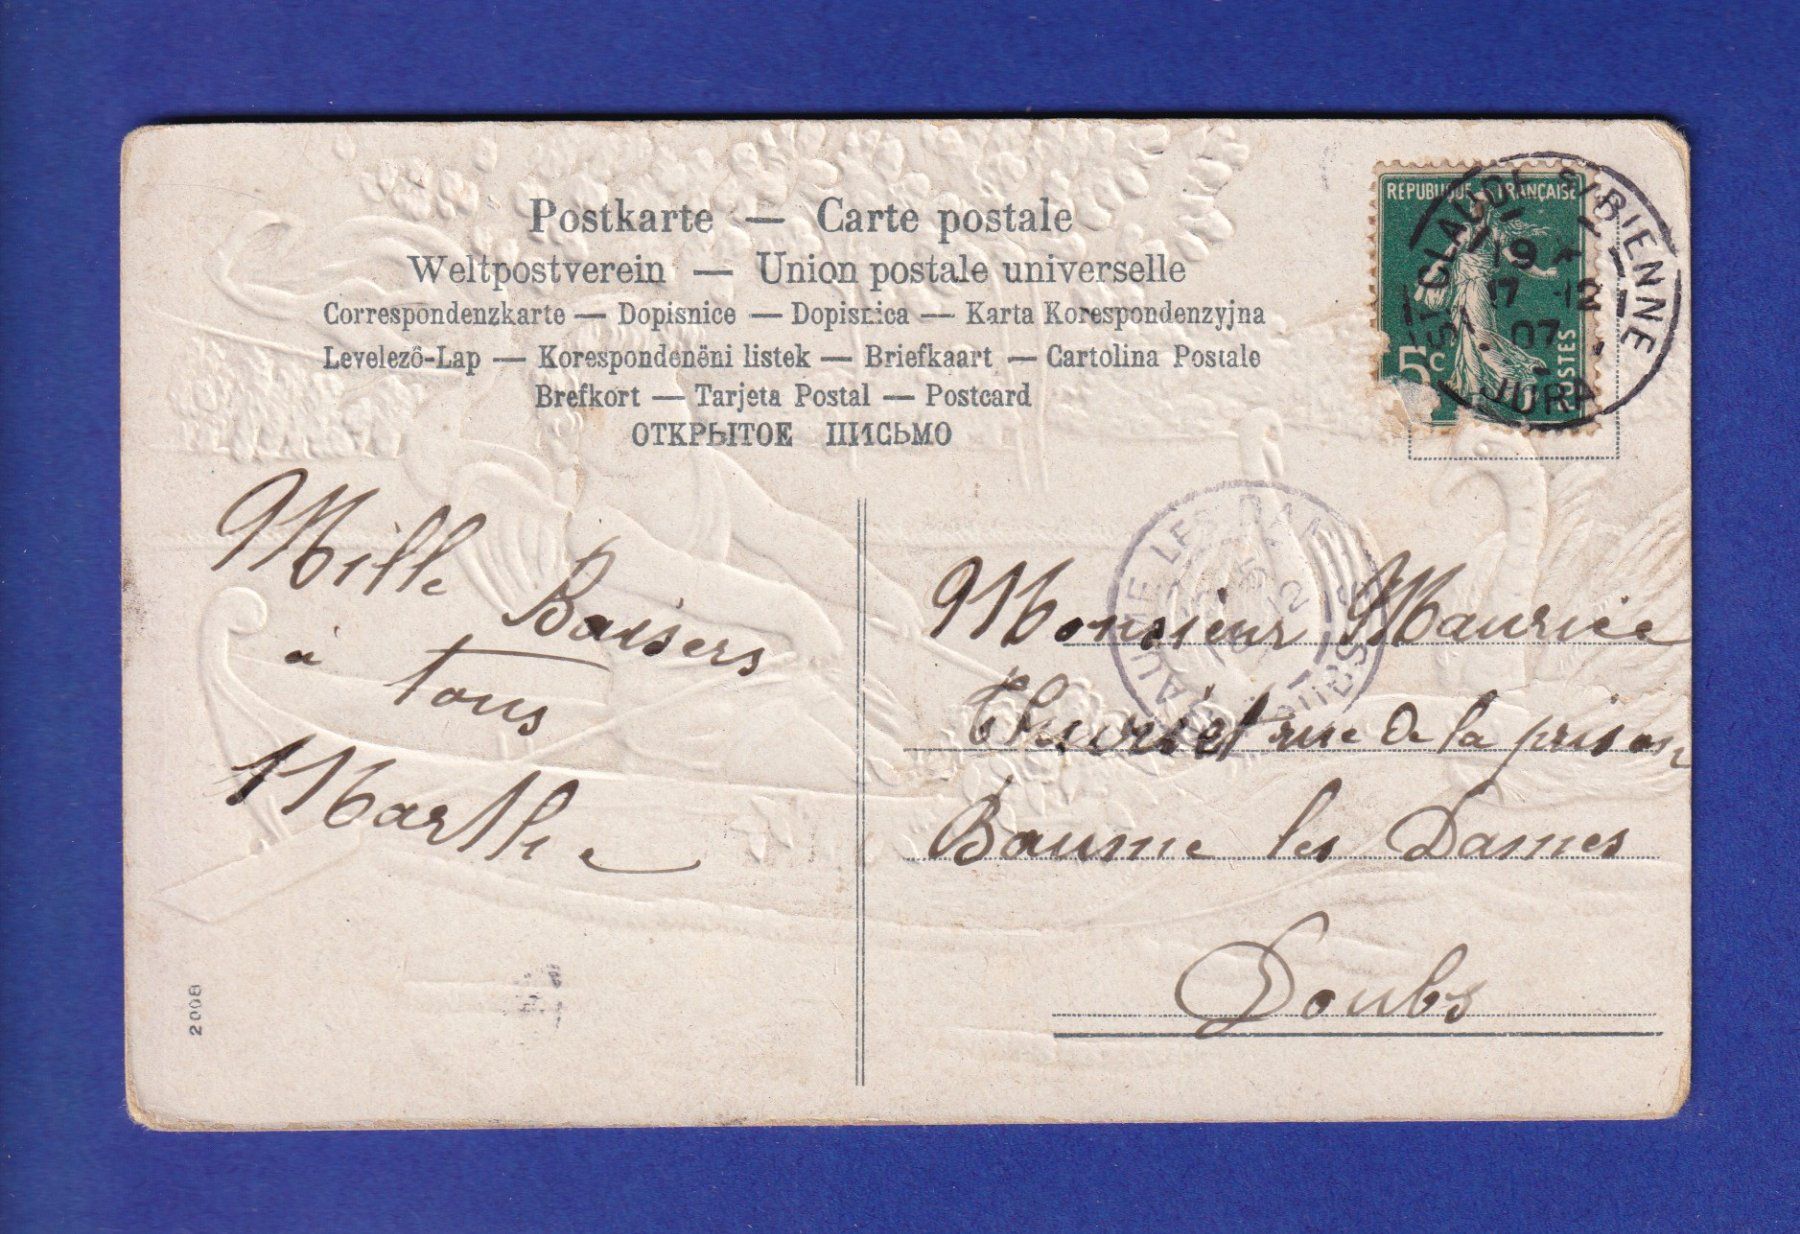 Postkarte — Carte postale
Weltpostverein — Union postale universelle
Correspondenzkarte — Dopisnice — Dopisnica — Karta Korespondenzyjna
Levelezô-Lap — Korespondenčni listek — Briefkaart — Cartolina Postale
Brefkort — Tarjeta Postal — Postcard
ОТКРЫТОЕ ПИСЬМО
REPUBLIQUE FRANÇAISE
5c
POSTES
ST CLAUDE S/BIENNE
19
17 12
07
JURA
BAUME LES DAMES
12
DOUBS
Mille Baisers
à tous
Marthe
Monsieur Maurice
Thuriet rue de la prison
Baume les Dames
Doubs
2008